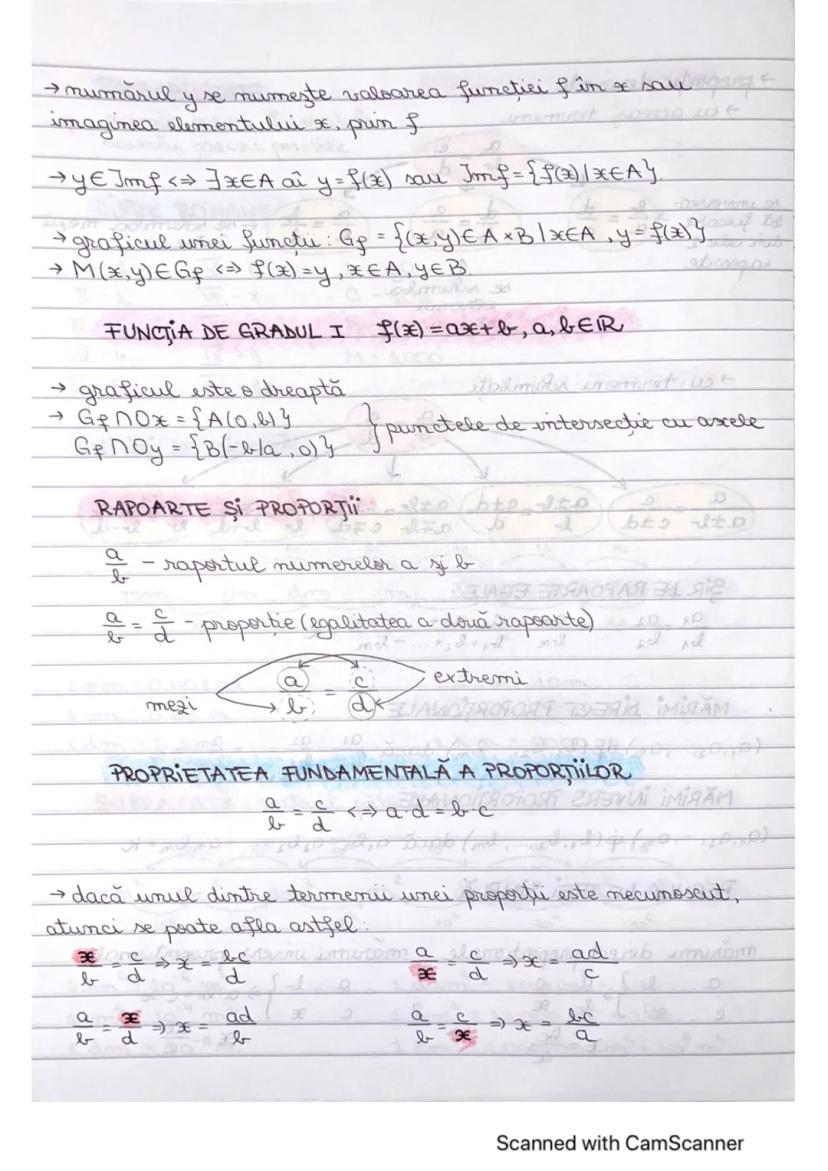 → numărul y se numește valoarea funcției f în x sau
imaginea elementului x, prin f
→ y∈Imf <=> ∃x∈A aî y=f(x) sau Imf={f(x)|x∈A}.
→ graficul unei funcții: Gf = {(x,y)∈A×B|x∈A, y=f(x)}
→ M(x,y)∈Gf <=> f(x)=y, x∈A, y∈B.
FUNCȚIA DE GRADUL I f(x)=ax+b, a, b∈ℝ
→ graficul este o dreaptă
→ Gf∩Ox = {A(0,b)}
Gf∩Oy = {B(-b/a, 0)} } punctele de intersecție cu axele
RAPOARTE ȘI PROPORȚII
a/b - raportul numerelor a și b
a/b = c/d - proporție (egalitatea a două rapoarte)
mezi a/b = c/d extremi
PROPRIETATEA FUNDAMENTALĂ A PROPORȚIILOR
a/b = c/d <=> a·d = b·c
→ dacă unul dintre termenii unei proporții este necunoscut,
atunci se poate afla astfel:
x/b = c/d => x = bc/d a/x = c/d => x = ad/c
a/b = x/d => x = ad/b a/b = c/x => x = bc/a
Scanned with CamScanner